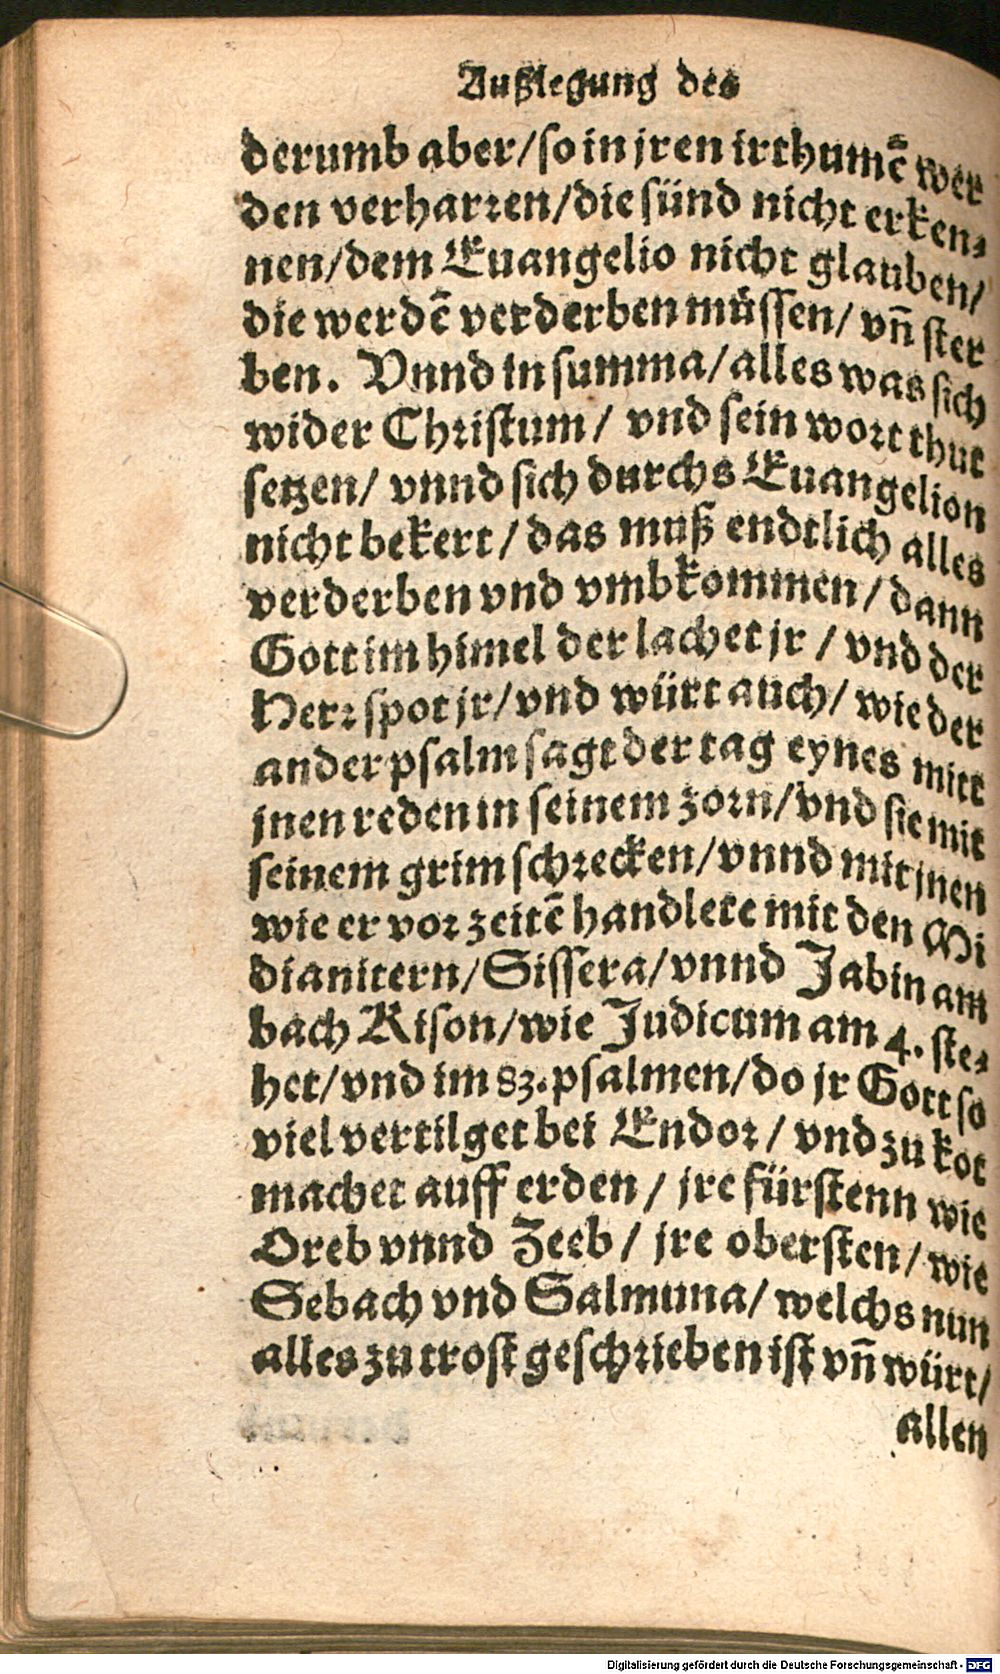 Außlegung des
derumb aber/so in jren irthumē wer
den verharren/die sünd nicht erken⸗
nen/dem Euangelio nicht glauben/
die werdē verderben müssen/ vñ ster
ben. Vnnd in summa/alles was sich
wider Christum/ vnd sein wort thut
setzen/ vnnd sich durchs Euangelion
nicht bekert/das muß endtlich alles
verderben vnd vmbkommen/dann
Gott im himel der lachet jr / vnd der
Herr spot jr/vnd würt auch/ wie der
ander psalm sagt der tag eynes mitt
jnen reden in seinem zorn/vnd sie mit
seinem grim schrecken/vnnd mit jnen
wie er vor zeitē handlete mit den Mi
dianitern/Sissera/vnnd Jabin am
bach Kison/wie Judicum am 4. ste⸗
het/vnd im 83.psalmen/do jr Gott so
viel vertilget bei Endor/ vnd zu kot
machet auff erden/ jre fürstenn wie
Oreb vnnd Zeeb/ jre obersten/wie
Sebach vnd Salmuna/ welchs nun
alles zu trost geschrieben ist vñ würt/
allen
Digitalisierung gefördert durch die Deutsche Forschungsgemeinschaft - DFG